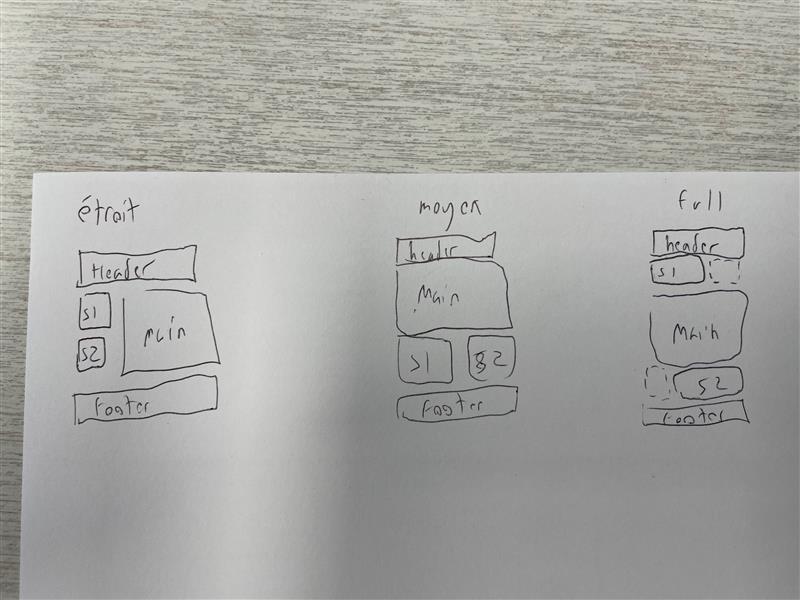 étroit
Header
S1
Main
S2
Footer
moyen
header
Main
S1
S2
Footer
full
header
S1
Main
S2
Footer